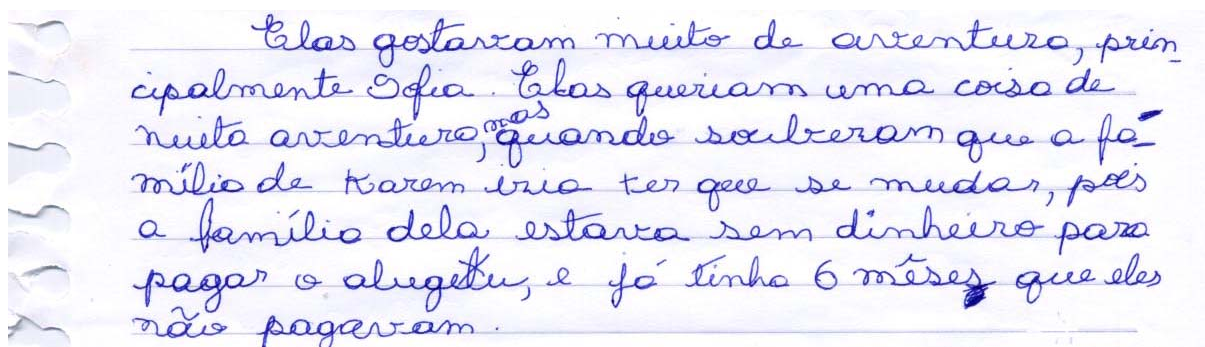 Elas gostavam muito de aventura, prin_
cipalmente Sofia. Elas queriam uma coisa de
muita aventura, mas quando souberam que a fa_
mília de Karem iria ter que se mudar, pois
a família dela estava sem dinheiro para
pagar o
, e já tinha 6 mêses que eles
não pagavam.